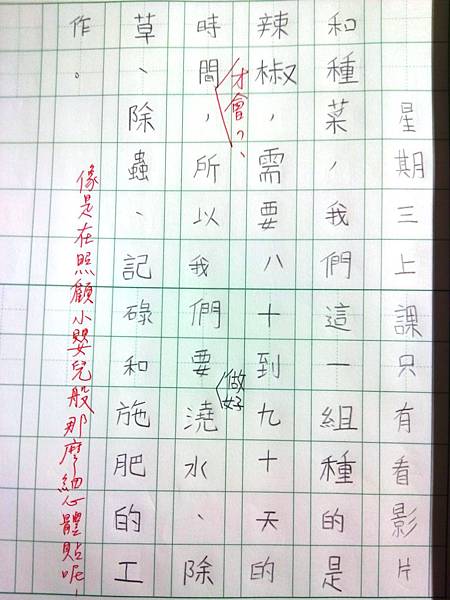 星期三上課只有看影片
和種菜，我們這一組種的是
辣椒，需要八十到九十天的
時間，所以我們要澆水、除
才會？、
做好
草、除蟲、記碌和施肥的工
作。
像是在照顧小嬰兒般那麼細心體貼呢！